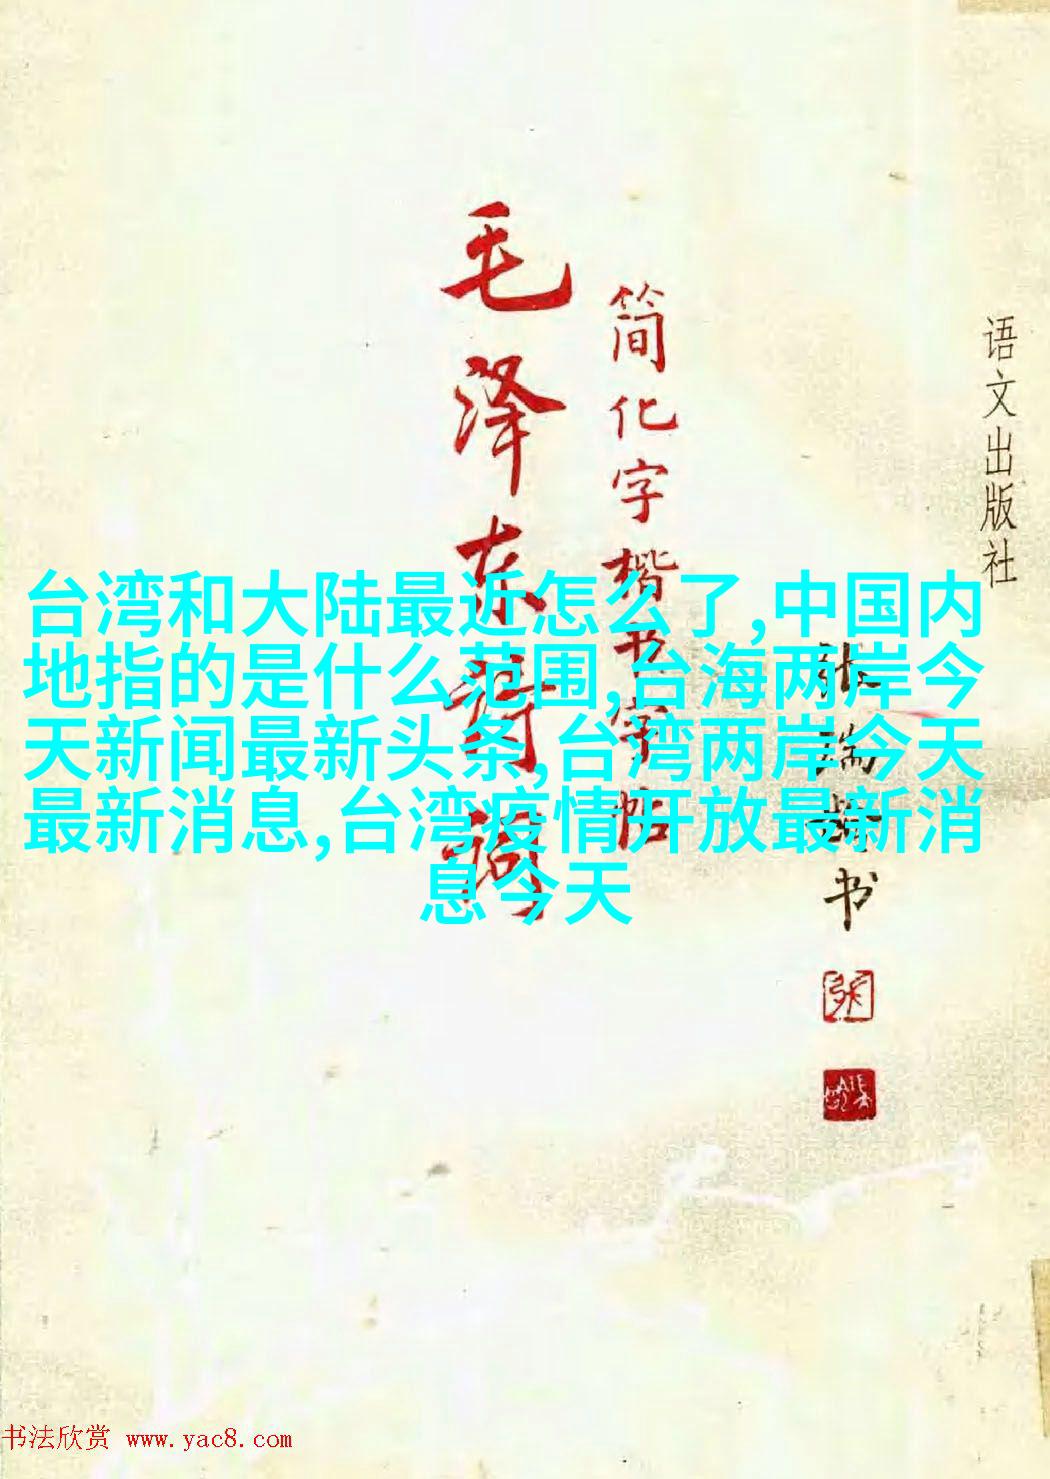 毛泽东诗词
简化字楷书字帖
语文出版社
张瑞龄书
台湾和大陆最近怎么了,中国内
地指的是什么范围,台海两岸今
天新闻最新头条,台湾两岸今天
最新消息,台湾疫情开放最新消
息今天
书法欣赏 www.yac8.com